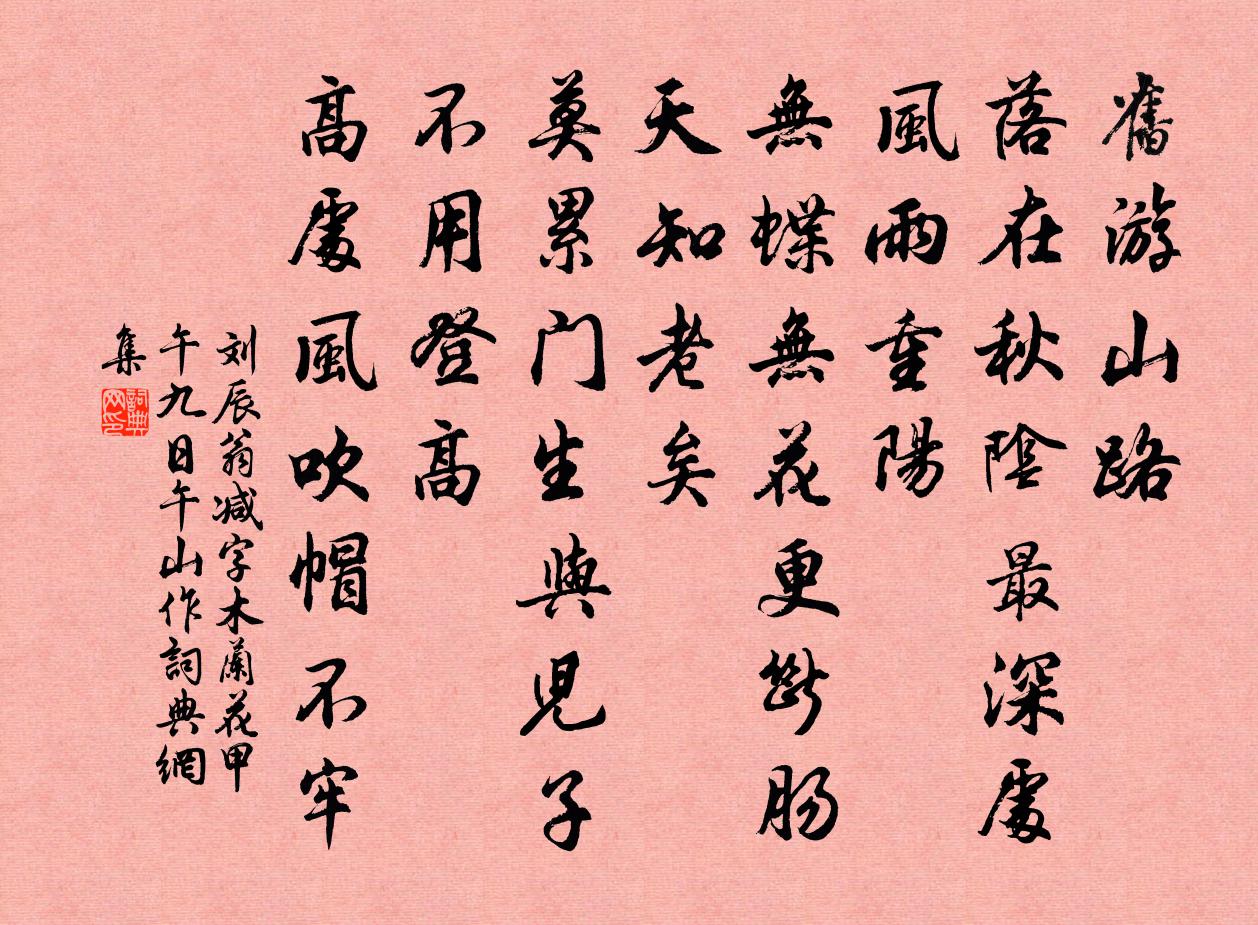 舊游山路
落在秋陰最深處
風雨重陽
無蝶無花更斷腸
天知老矣
莫累门生與兒子
不用登高
高處風吹帽不牢
刘辰翁减字木蘭花甲
午九日午山作詞典網
集
詞典网印